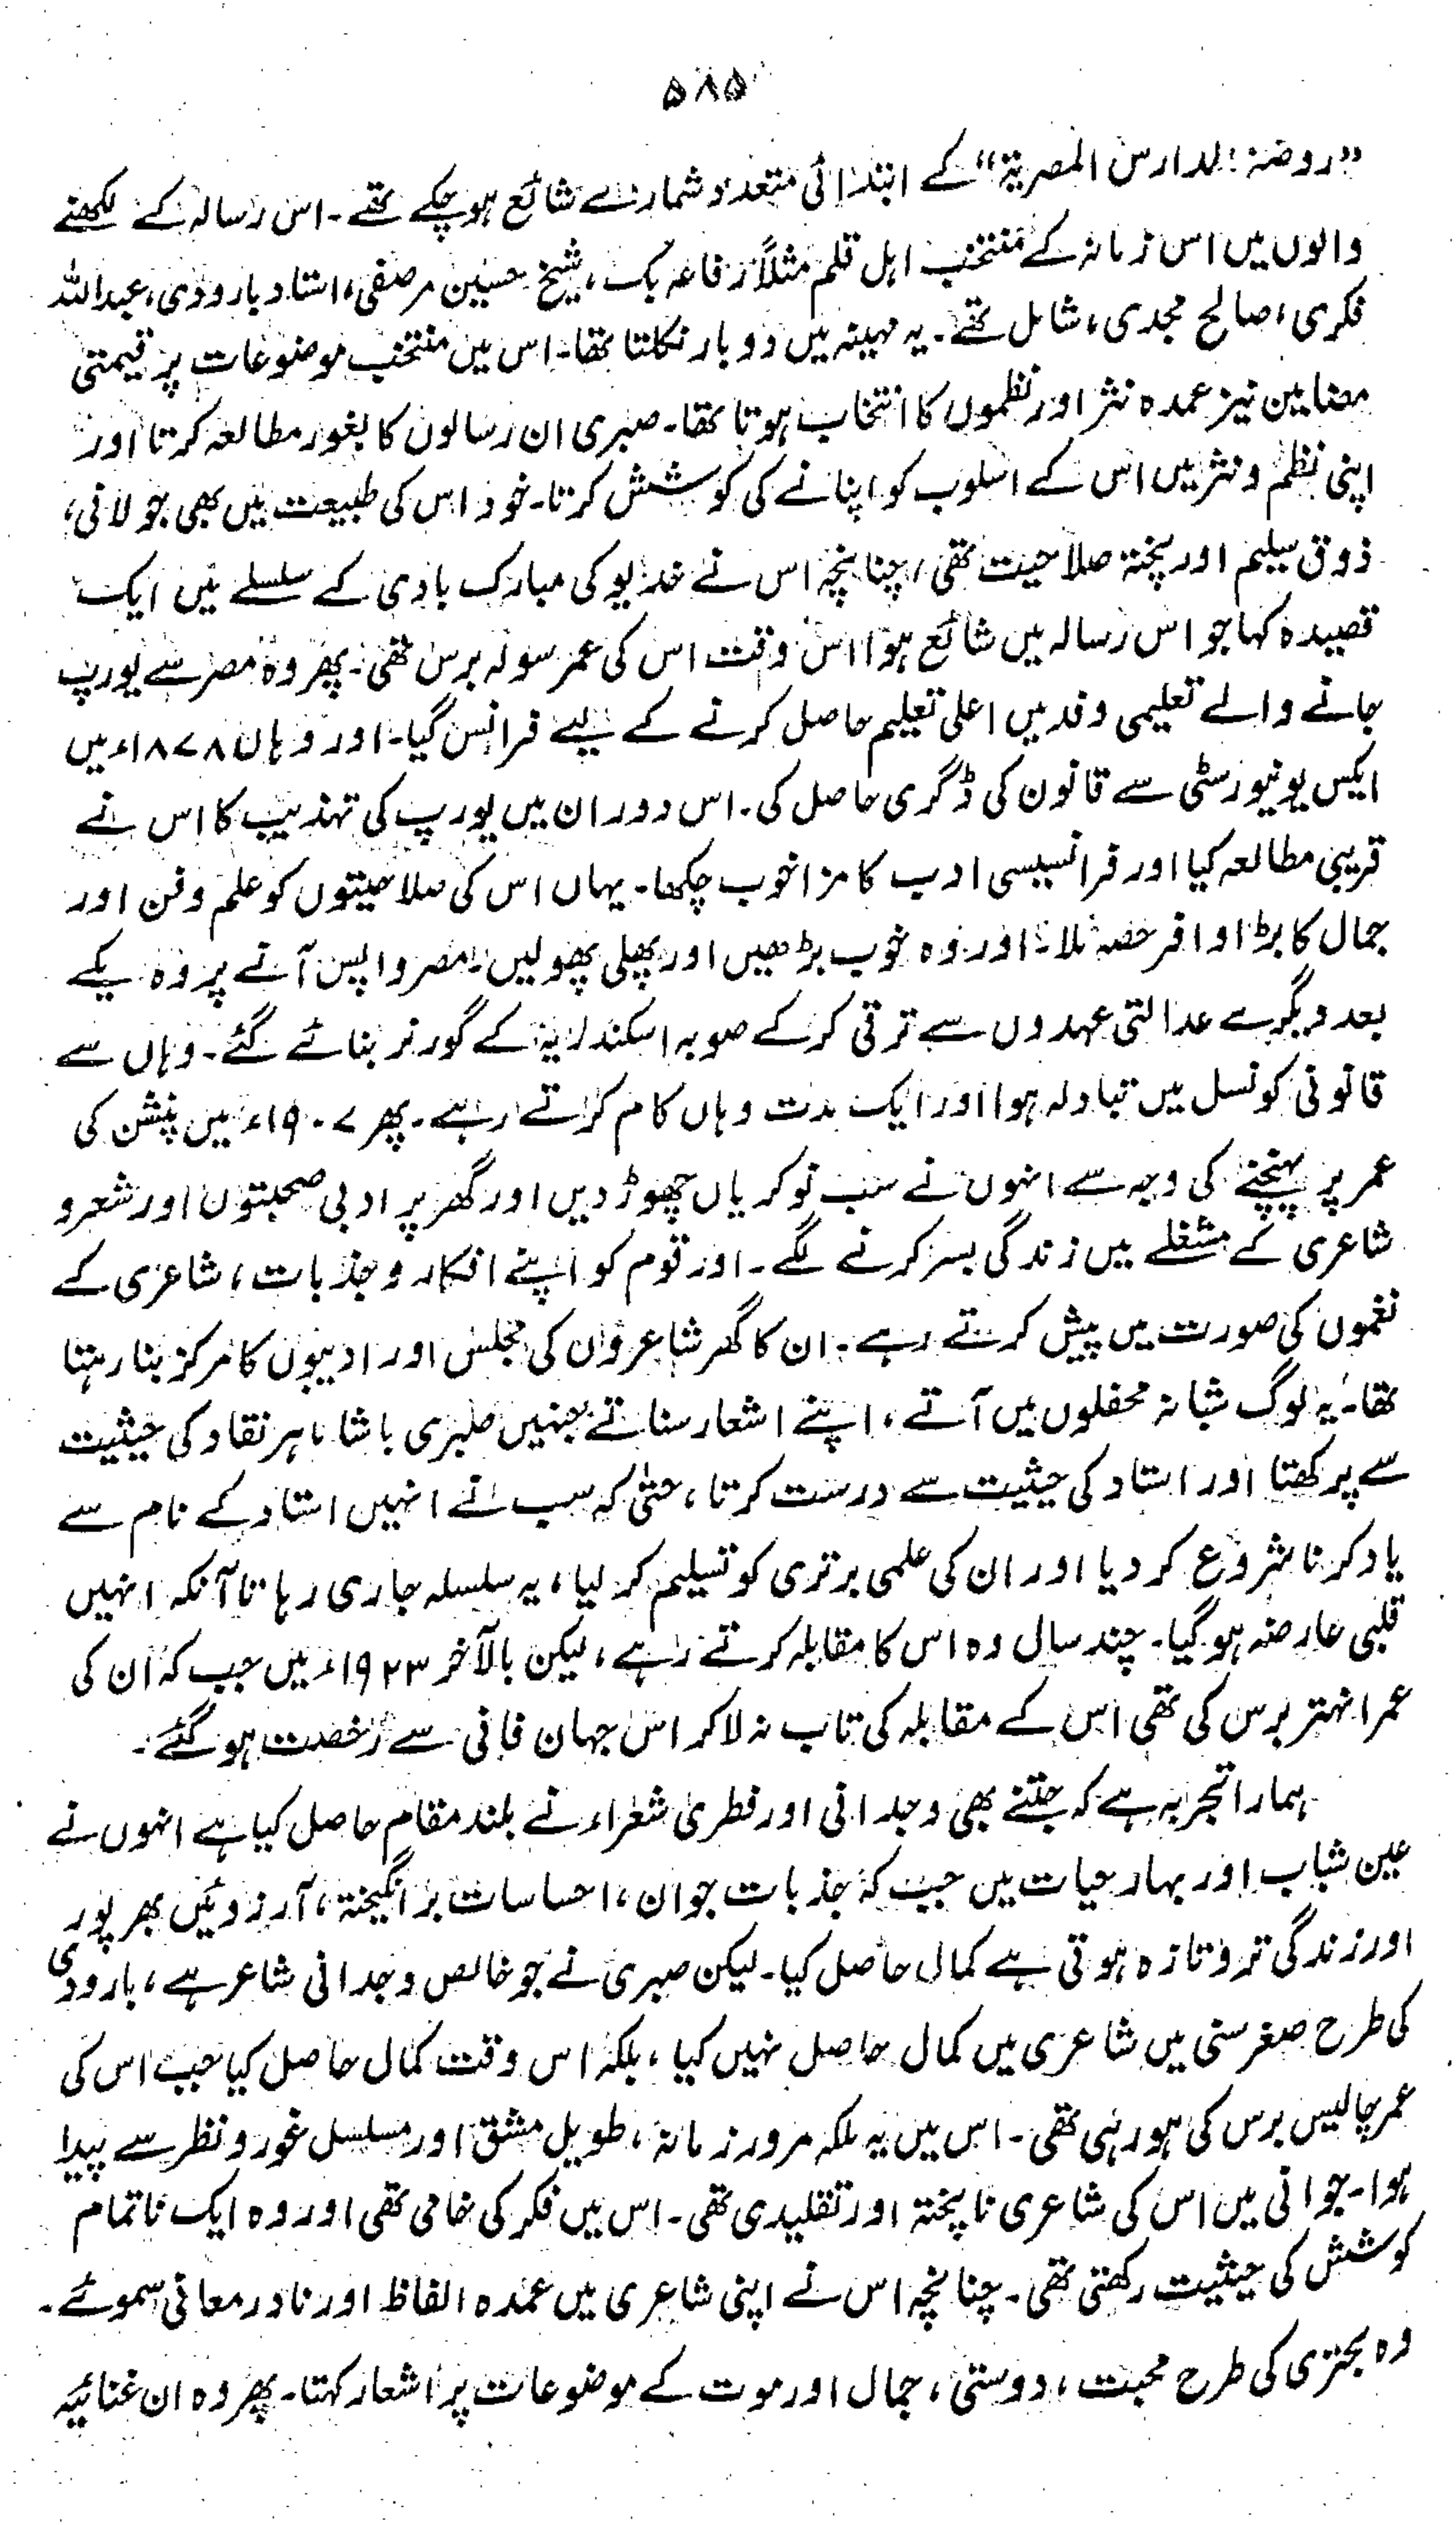 ۵۸۵
”روضۃ المدارس المصریۃ“ کے ابتدائی متعدد شمارے شائع ہو چکے تھے۔ اس رسالہ کے لکھنے
والوں میں اس زمانہ کے منتخب اہل قلم مثلاً رفاعہ بک، شیخ حسین مرصفی، استاد بارودی، عبداللہ
فکری، صالح مجدی، شامل تھے۔ یہ مہینہ میں دو بار نکلتا تھا۔ اس میں منتخب موضوعات پر قیمتی
مضامین نیز عمدہ نثر اور نظموں کا انتخاب ہوتا تھا۔ صبری ان رسالوں کا بغور مطالعہ کرتا اور
اپنی نظم و نثر میں اس کے اسلوب کو اپنانے کی کوشش کرتا۔ خود اس کی طبیعت میں بھی جولانی،
ذوق سلیم اور پختہ صلاحیت تھی، چنانچہ اس نے خدیو کی مبارک بادی کے سلسلے میں ایک
قصیدہ کہا جو اس رسالہ میں شائع ہوا اس وقت اس کی عمر سولہ برس تھی۔ پھر وہ مصر سے یورپ
جانے والے تعلیمی وفد میں اعلی تعلیم حاصل کرنے کے لیے فرانس گیا۔ اور وہاں ۱۸۷۸ء میں
ایکس یونیورسٹی سے قانون کی ڈگری حاصل کی۔ اس دوران میں یورپ کی تہذیب کا اس نے
قریبی مطالعہ کیا اور فرانسیسی ادب کا مزا خوب چکھا۔ یہاں اس کی صلاحیتوں کو علم و فن اور
جمال کا بڑا وافر حصہ ملا۔ اور وہ خوب بڑھیں اور پھلی پھولیں۔ مصر واپس آنے پر وہ یکے
بعد دیگرے عدالتی عہدوں سے ترقی کر کے صوبہ اسکندریہ کے گورنر بنائے گئے۔ وہاں سے
قانونی کونسل میں تبادلہ ہوا اور ایک مدت وہاں کام کرتے رہے۔ پھر ۱۹۰۷ء میں پنشن کی
عمر پر پہنچنے کی وجہ سے انہوں نے سب نوکریاں چھوڑ دیں اور گھر پر ادبی صحبتوں اور شعر و
شاعری کے مشغلے میں زندگی بسر کرنے لگے۔ اور قوم کو اپنے افکار و جذبات، شاعری کے
نغموں کی صورت میں پیش کرتے رہے۔ ان کا گھر شاعروں کی مجلس اور ادیبوں کا مرکز بنا رہتا
تھا۔ یہ لوگ شبانہ محفلوں میں آتے، اپنے اشعار سناتے جنہیں صبری باشا ماہر نقاد کی حیثیت
سے پرکھتا اور استاد کی حیثیت سے درست کرتا، حتیٰ کہ سب نے انہیں استاد کے نام سے
یاد کرنا شروع کر دیا اور ان کی علمی برتری کو تسلیم کر لیا، یہ سلسلہ جاری رہا تا آنکہ انہیں
قلبی عارضہ ہو گیا۔ چند سال وہ اس کا مقابلہ کرتے رہے، لیکن بالآخر ۱۹۲۳ء میں جب کہ ان کی
عمر انہتر برس کی تھی اس کے مقابلہ کی تاب نہ لا کر اس جہان فانی سے رخصت ہو گئے۔
ہمارا تجربہ ہے کہ جتنے بھی وجدانی اور فطری شعراء نے بلند مقام حاصل کیا ہے انہوں نے
عین شباب اور بہار حیات میں جب کہ جذبات جوان، احساسات برانگیختہ، آرزوئیں بھرپور
اور زندگی تر و تازہ ہوتی ہے کمال حاصل کیا۔ لیکن صبری نے جو خالص وجدانی شاعر ہے، بارودی
کی طرح صغر سنی میں شاعری میں کمال حاصل نہیں کیا، بلکہ اس وقت کمال حاصل کیا جب اس کی
عمر چالیس برس کی ہو رہی تھی۔ اس میں یہ ملکہ مرور زمانہ، طویل مشق اور مسلسل غور و نظر سے پیدا
ہوا۔ جوانی میں اس کی شاعری ناپختہ اور تقلیدی تھی۔ اس میں فکر کی خامی تھی اور وہ ایک ناتمام
کوشش کی حیثیت رکھتی تھی۔ چنانچہ اس نے اپنی شاعری میں عمدہ الفاظ اور نادر معانی سموئے۔
وہ بحتری کی طرح محبت، دوستی، جمال اور موت کے موضوعات پر اشعار کہتا۔ پھر وہ ان غنائیہ